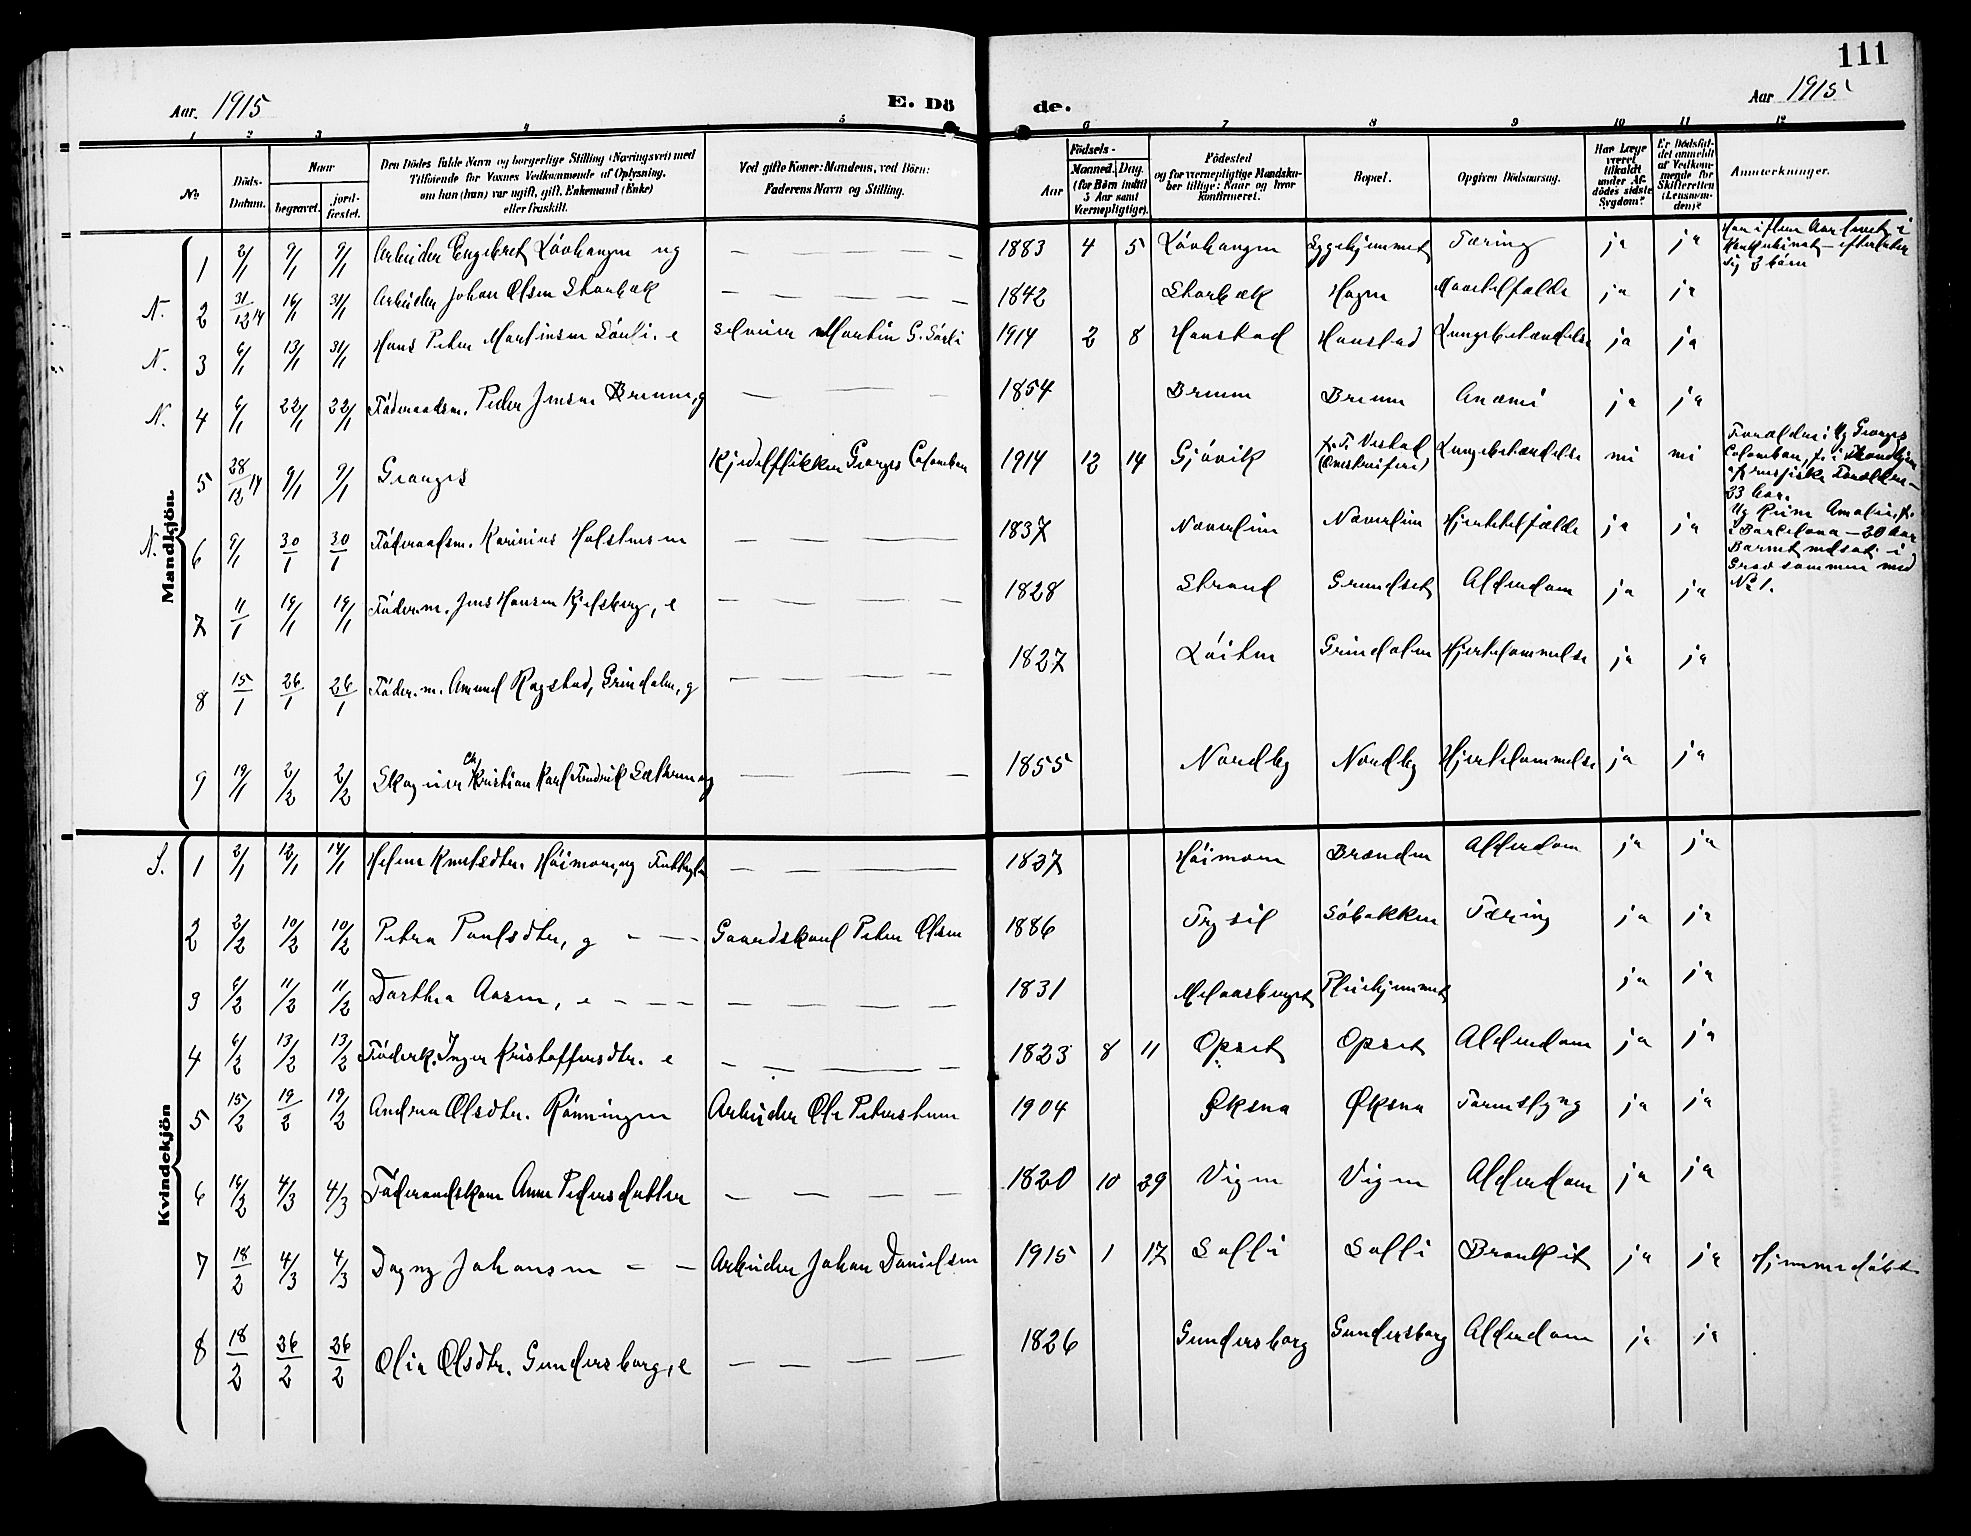 111
Aar. 1915
E. Dö
de.
Aar 1915
1 2 3 4 5 6 7 8 9 10 11 12
No
Döds-Datum.
Naar
begravet.
jord-fæstet.
Den Dödes fulde Navn og borgerlige Stilling (Næringsvei) med
Tilföiende for Voxnes Vedkommende af Oplysning,
om han (hun) var ugift, gift, Enkemand (Enke)
eller fraskilt.
Ved gifte Koner: Mandens, ved Börn:
Faderens Navn og Stilling.
Födsels-
Aar
Maaned. Dag.
(for Börn indtil
5 Aar samt
Værnepligtige).
Födested
og for værnepligtige Mandska-
ber tillige: Naar og hvor
konfirmeret.
Bopæl.
Opgiven Dödsaarsag.
Har Læge
været
tilkaldt
under Af-
dödes sidste
Sygdom?
Er Dödsfal-
det anmeldt
af Vedkom-
mende for
Skifteretten
(Lensman-
den)?
Anmærkninger.
Mandkjön.
1 2/1 9/1 9/1 Arbeider Engebret Lövhaugen ug — — — 1883 4 5 Lövhaugen Sygehjemmet Tæring ja ja
N. 2 31/12 14 16/1 31/1 Arbeider Johan Olsen Skarbæk — — — 1842 Skarbæk Hagen ja ja
N. 3 6/1 13/1 31/1 Hans Peter Martinsen Sörli. e Martin G. Sörli 1914 2 8 Hanstad Hanstad Lungebetændelse ja ja
N. 4 6/1 22/1 22/1 Föderaadsm. Peder Jensen Brenna, g — — — 1854 Brenn Brenn Anæmi ja ja
5 28/12 14 9/1 9/1 Georges Kjedelflikker Georges Colomban 1914 12 14 Gjövik Lungebetændelse nei nei
N. 6 9/1 30/1 30/1 Föderaadsm. Karinius Halstensen — — — 1837 Næverlien Næverlien ja ja
7 11/1 19/1 19/1 Föder.m. Jens Hansen Kjelsberg, e — — — 1828 Strand Grundset Alderdom ja ja
8 15/1 26/1 26/1 Föder.m. Amund Rogstad, Grindalen, g — — — 1827 Löiten Grindalen Hjertelammelse ja ja
9 19/1 2/2 2/2 Skogeier Kristian Karl Fredrik Sæthren ug — — — 1855 Nordby Nordby Hjertelammelse ja ja
No 1.
Kvindekjön
S. 1 2/1 12/1 14/1 Helene Knutsdtr. Höimoen, ug — — — 1837 Höimoen Brænden Alderdom ja ja
2 2/2 10/2 10/2 Petra Paulsdtr, g — — Gaardskarl Peter Olsen 1886 Trysil Söbakken Tæring ja ja
3 6/2 11/2 11/2 Dorthea Aasen, e — — — 1831 Pleiehjemmet ja ja
4 6/2 13/2 13/2 Föderk. Inger Kristoffersdtr. e — — — 1823 8 11 Opset Opset Alderdom ja ja
5 15/2 19/2 19/2 Andrea Olsdtr. Rönningen Arbeider Ole Peterstuen 1904 Øksna Øksna Tarmslyng ja ja
6 16/2 4/3 4/3 Föderaadskone Anne Pedersdatter — — — 1820 10 29 Vigen Vigen Alderdom ja ja
7 18/2 4/3 4/3 Dagny Johansen — — Arbeider Johan Danielsen 1915 1 17 Solli Solli Bronkit ja ja Hjemmedöbt
8 18/2 26/2 26/2 Olia Olsdtr. Gundersborg, e — — — 1826 Gundersborg Gundersborg Alderdom ja ja